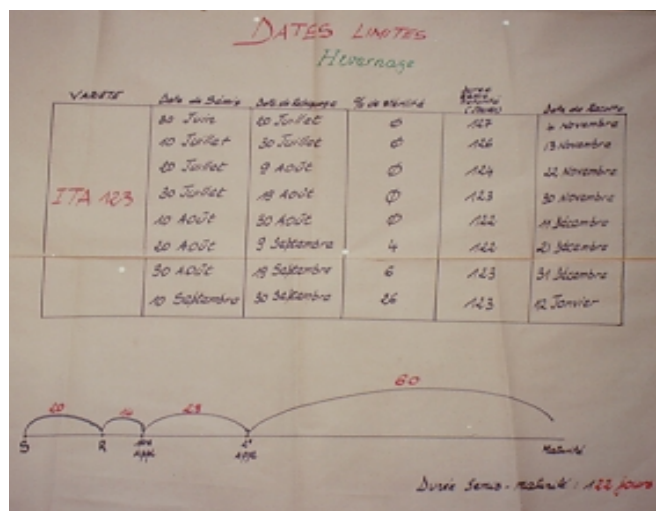 DATES LIMITES
Hivernage
VARIETE Date de Sémis Date de Repiquage % de stérilité Durée Semis Maturité (Jours) Date de Récolte
30 Juin 20 Juillet Ø 127 4 Novembre
10 Juillet 30 Juillet Ø 126 13 Novembre
20 Juillet 9 Août Ø 124 22 Novembre
ITA 123 30 Juillet 19 Août Ø 123 30 Novembre
10 AOÛT 30 AOÛT Ø 122 11 Décembre
20 AOÛT 9 Septembre 4 122 21 Décembre
30 AOÛT 19 Septembre 6 123 31 Décembre
10 Septembre 30 Septembre 26 123 12 Janvier
60
20 23
S R Appl Appl Maturité
Durée Semis - maturité : 122 jours